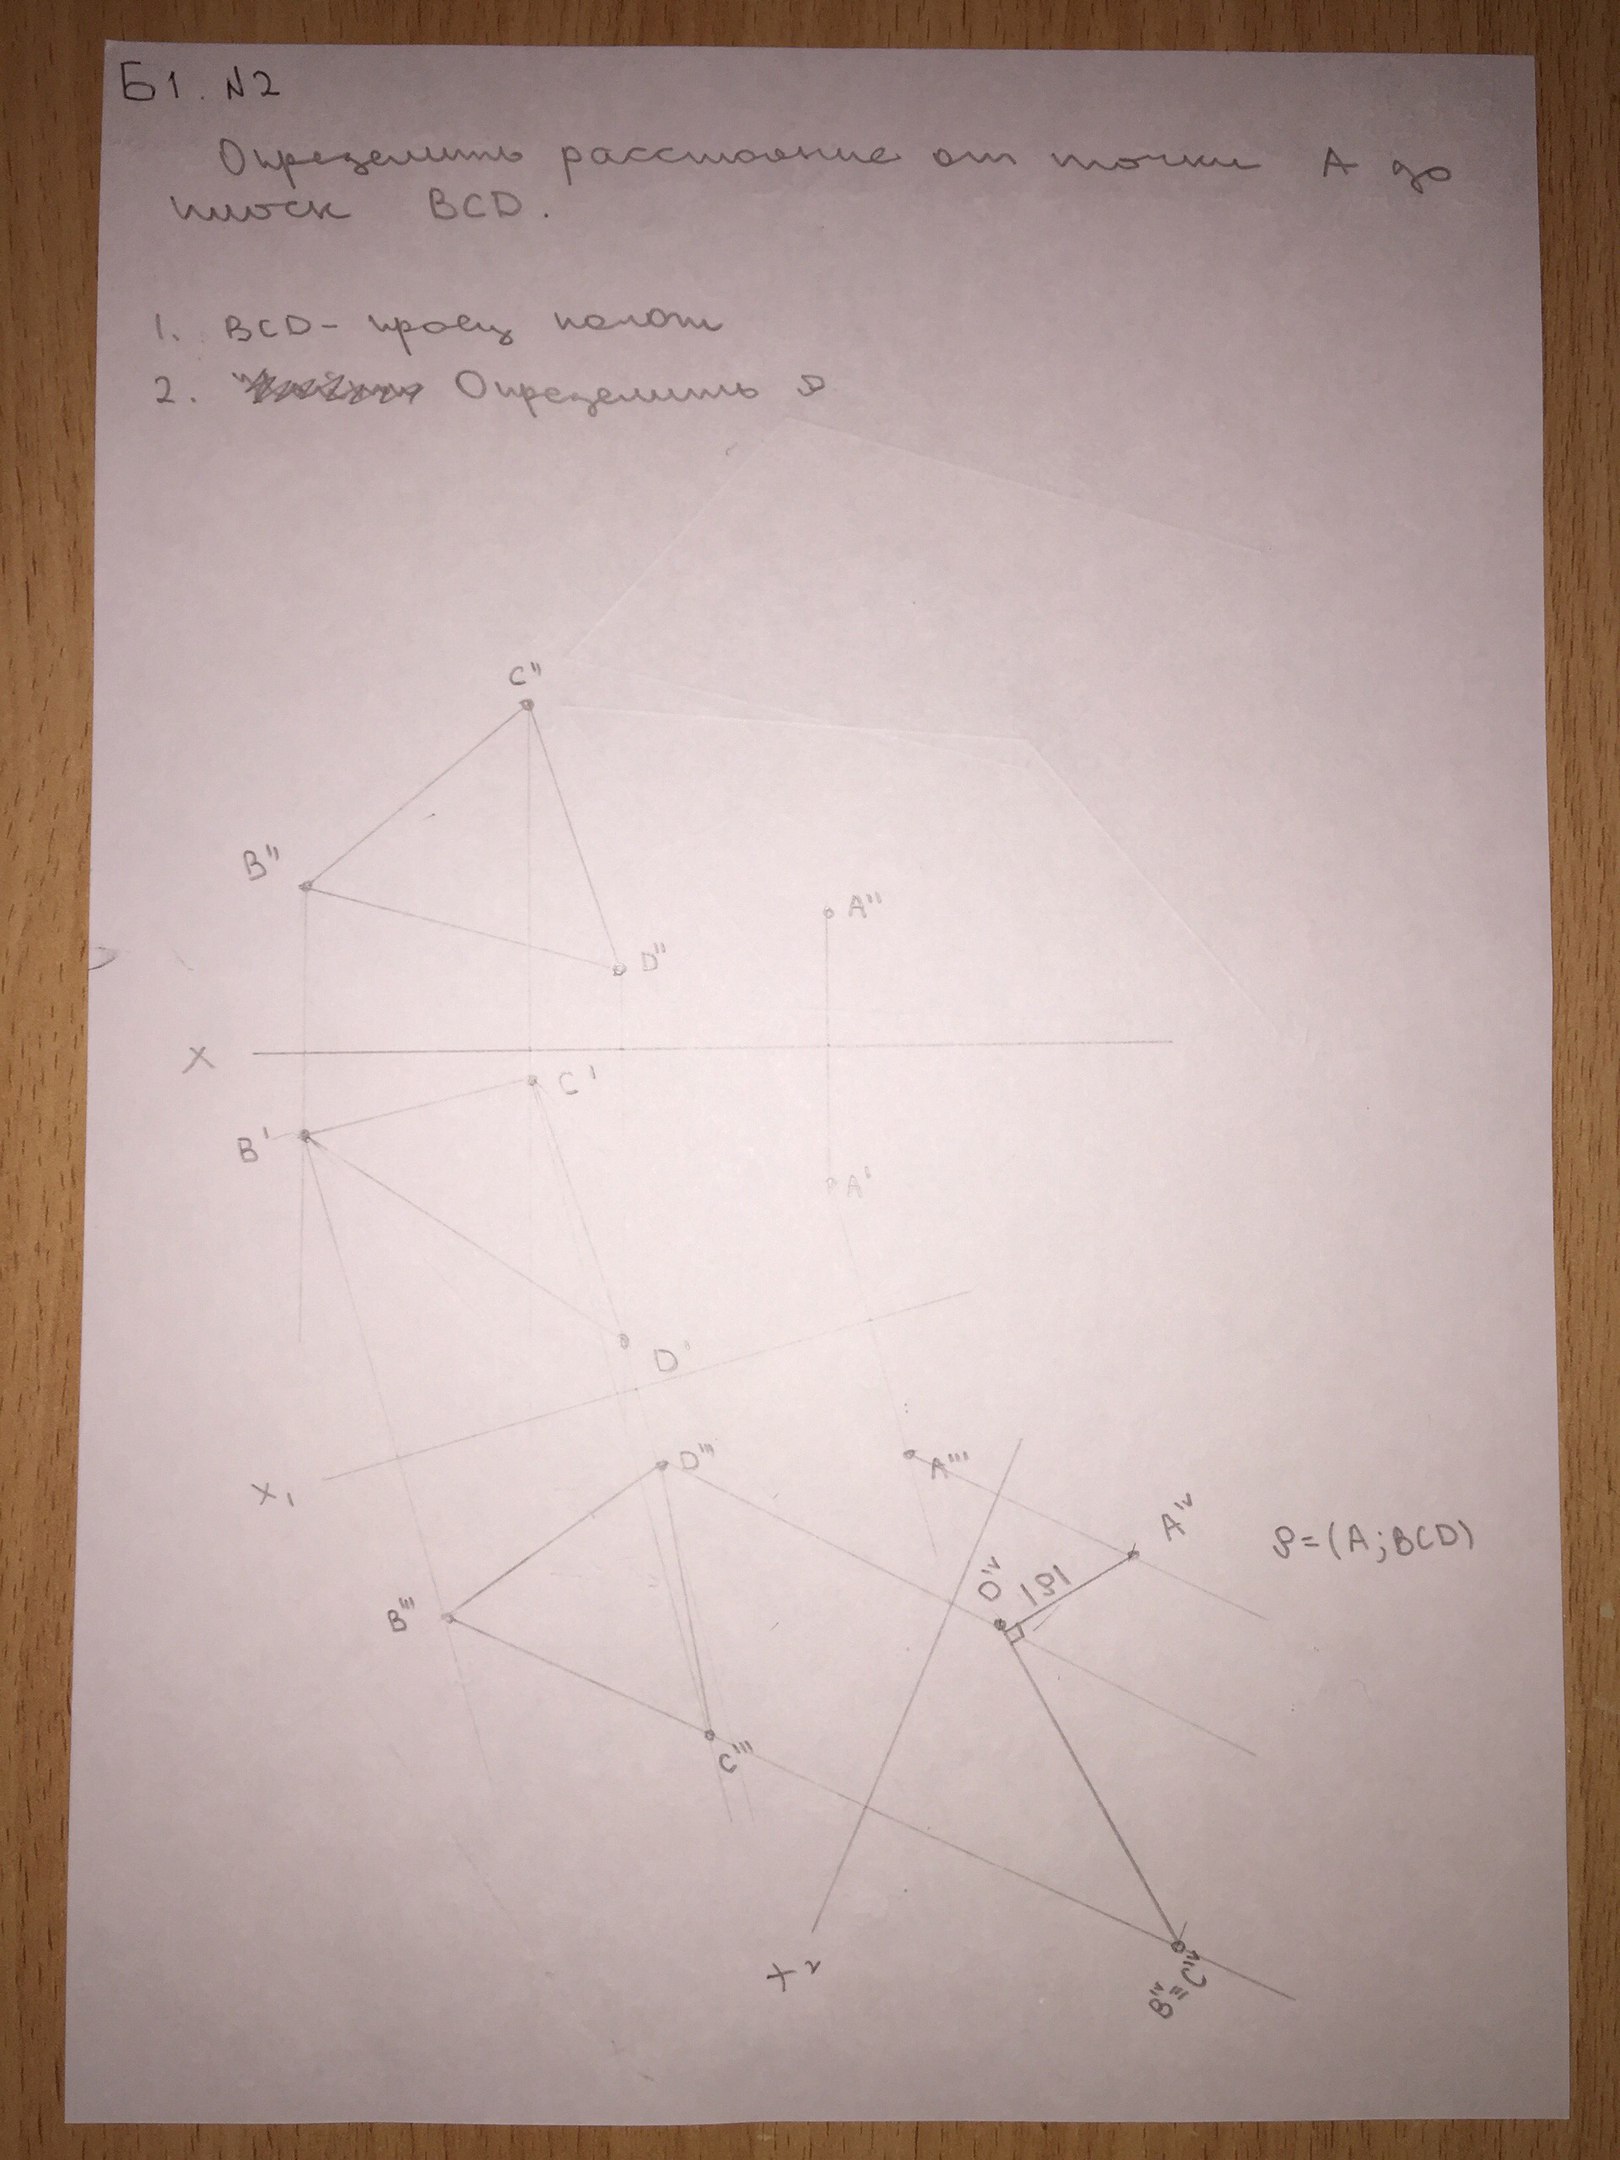 Б1. N2
Определить расстояние от точки А до
плоск BCD.
1. BCD - проец полож
2. Определить ρ
C"
B"
A"
D"
X
C'
B'
A'
D'
D'''
A'''
X₁
A'ᵛ
ρ=(A;BCD)
D'ᵛ
|ρ|
B'''
C'''
X₂
B'ᵛ≡C'ᵛ